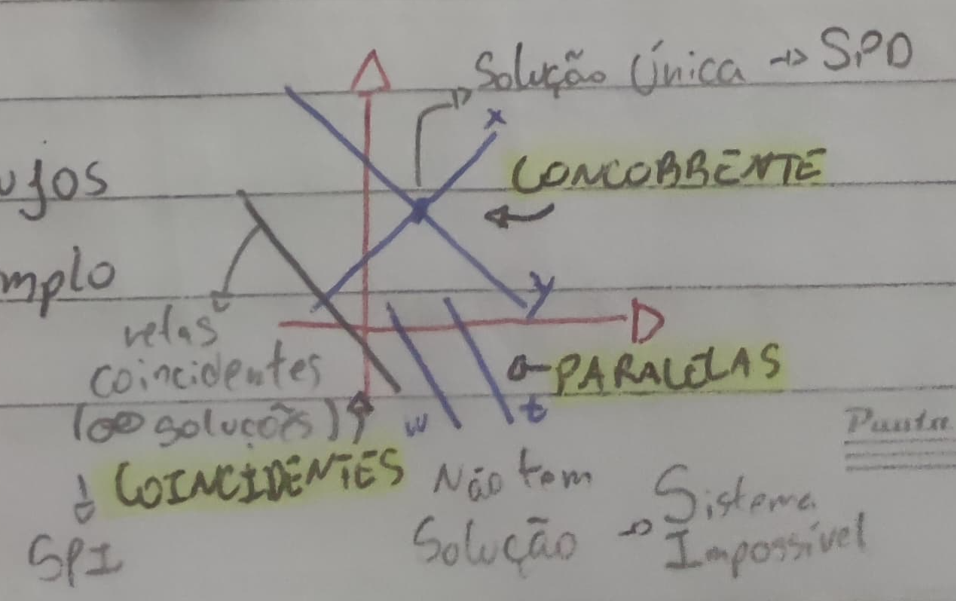 Solução Única → SPD
x
CONCORRENTE
ujos
mplo
y
retas
coincidentes
(∞ soluções)
PARALELAS
w
t
COINCIDENTES
SPI
Não tem
Solução → Sistema
Impossível